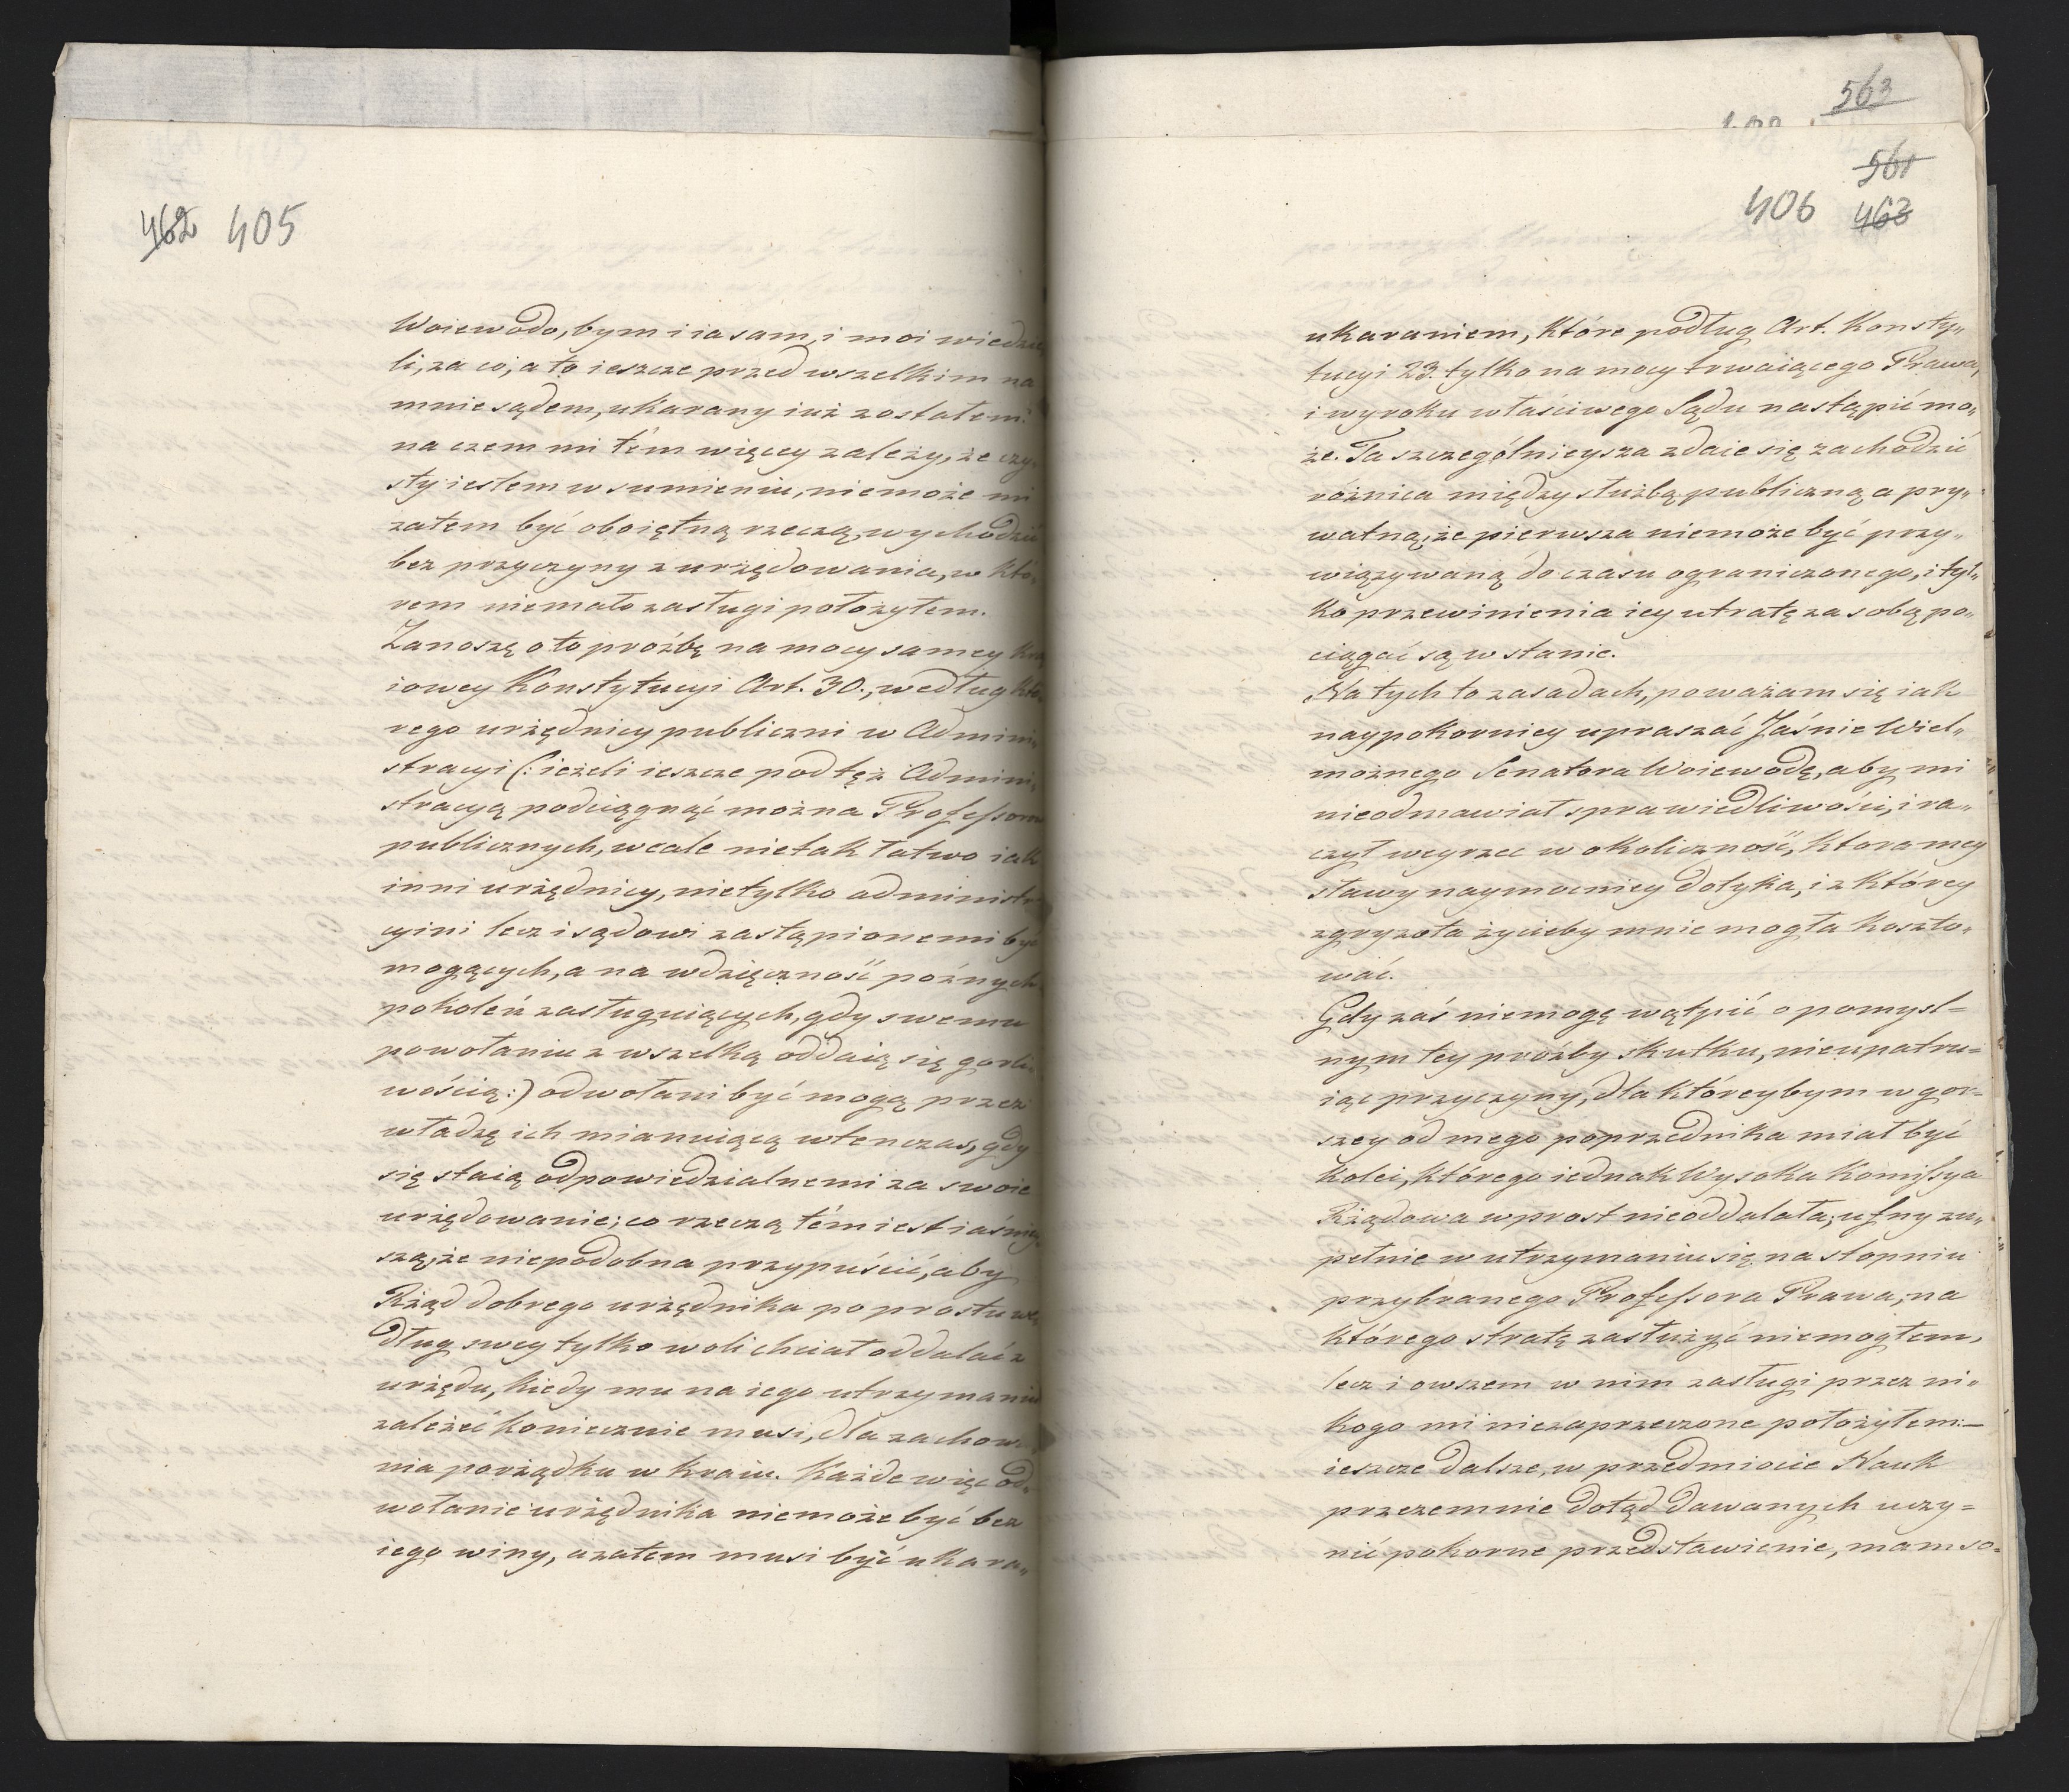 462 405
Woiewodo, bym i ia sam, i moi wiedzie
li, za co, a to ieszcze przed wszelkim na
mnie sądem, ukarany iuż zostałem:
na czem mi tém więcey zależy, że czy„
sty iestem w sumieniu, niemoże mi
zatem być oboiętną rzeczą, wychodzić
bez przyczyny z urzędowania, w któ„
rem niemało zasługi położyłem.
Zanoszę o to proźbę na mocy samey kra
iowey Konstytucyi Art. 30., według któ„
rego urzędnicy publiczni w Admini„
stracyi (: ieżeli ieszcze pod tęż Admini„
stracyą podciągnąć można Professorów
publicznych, wcale nietak łatwo iak
inni urzędnicy, nietylko administra
cyini lecz i sądowi zastąpionemi być
mogących, a na wdzięczność poźnych
pokoleń zasługuiących, gdy swemu
powołaniu z wszelką oddaią się gorli„
wością :) odwołani być mogą przez
władzę ich mianuiącą wtenczas, gdy
się staią odpowiedzialnemi za swoie
urzędowanie; co rzeczą tém iest iaśniey
szą, że niepodobna przypuścić, aby
Rząd dobrego urzędnika po prostu we„
dług swey tylko woli chciał oddalać z
urzędu, kiedy mu na iego utrzymaniu
zależeć koniecznie musi, dla zachowa
nia porządku w kraiu. Każde więc od„
wołanie urzędnika niemoże być bez
iego winy, a zatem musi być ukara„
563
408
561
406 463
ukaraniem, które podług Art. Konsty„
tucyi 23. tylko na mocy trwaiącego Prawa,
i wyroku właściwego Sądu nastąpić mo„
że. Ta szczególnieysza zdaie się zachodzić
różnica między służbą publiczną a pry„
watną, że pierwsza niemoże być przy„
wiązywaną do czasu ograniczonego, i tyl„
ko przewinienia iey utratę za sobą po„
ciągać są w stanie.
Na tych to zasadach, poważam się iak
naypokorniey upraszać Jaśnie Wiel„
możnego Senatora Woiewodę, aby mi
nieodmawiał sprawiedliwości, i ra„
czył weyrzeć w okoliczność, która mey
sławy naymocniey dotyka, i z którey
zgryzota życieby mnie mogła koszto„
wać.
Gdy zaś niemogę wątpić o pomyśl=
nym tey proźby skutku, nieupatru=
iąc przyczyny, dla któreybym w gor=
szey od mego poprzednika miał być
kolei, którego iednak Wysoka Komissya
Rządowa wprost nieoddalała; ufny zu„
pełnie w utrzymaniu się na stopniu
przybranego Professora Prawa, na
którego stratę zasłużyć niemogłem,
lecz i owszem w nim zasługi przez ni„
kogo mi niezaprzeczone położyłem:—
ieszcze dalsze, w przedmiocie Nauk
przezemnie dotąd dawanych uczy=
nić pokorne przedstawienie, mam so„